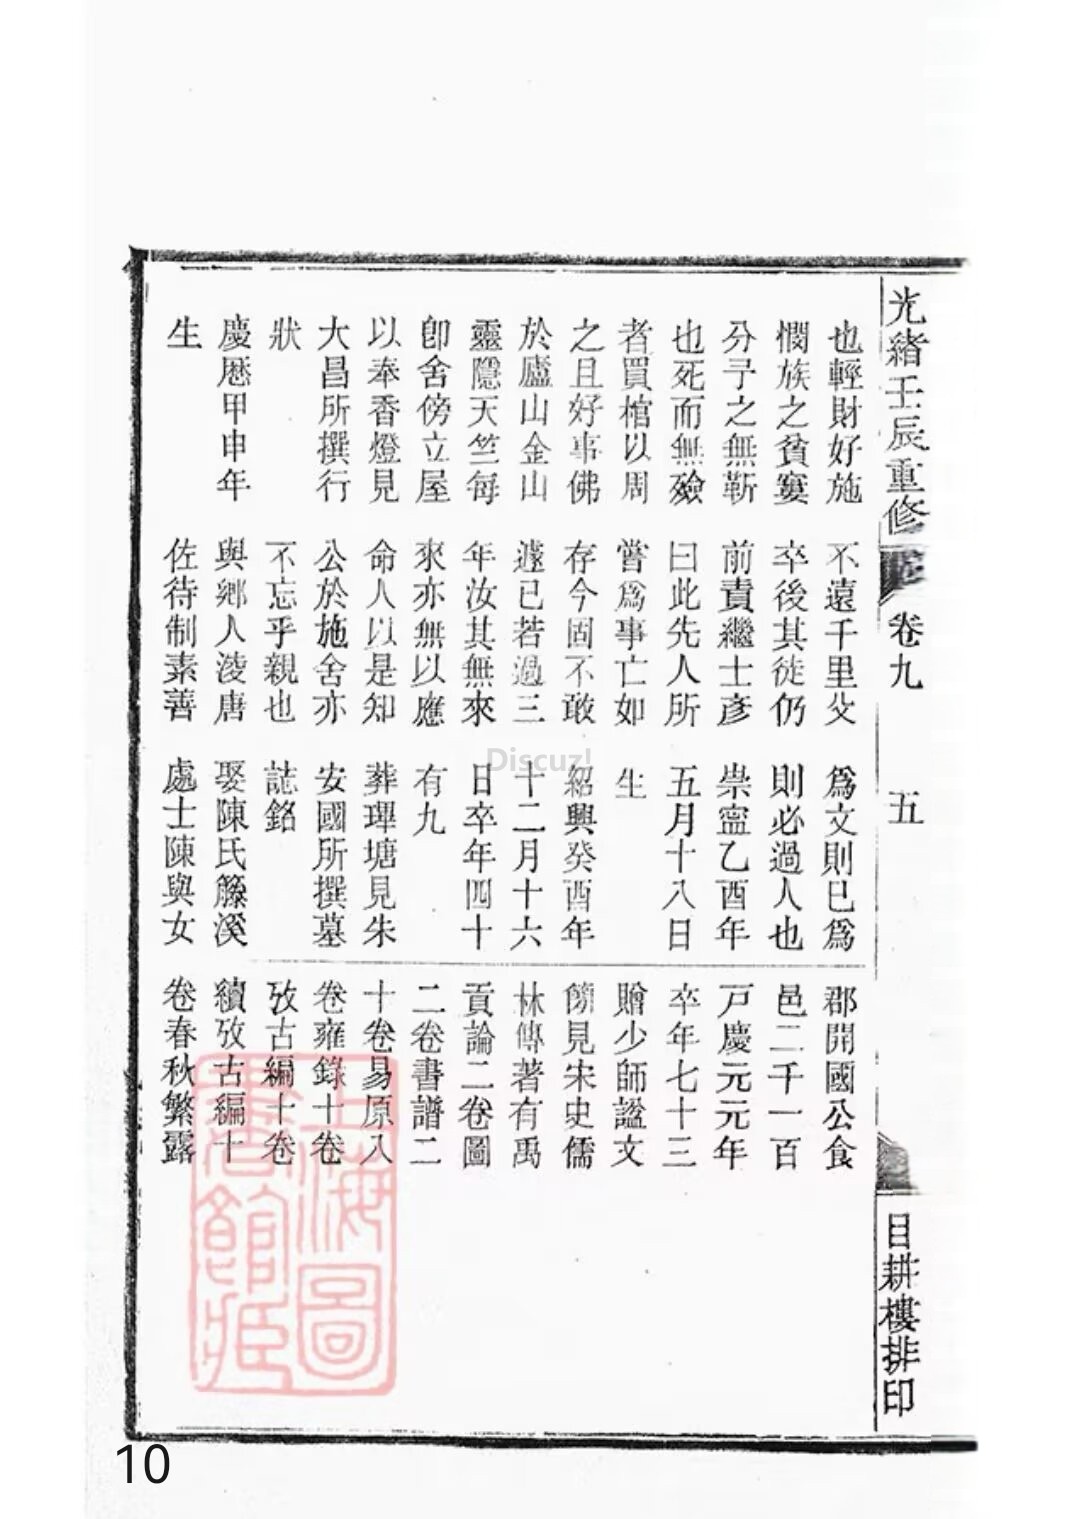 光緒壬辰重修
卷九
五
目耕樓排印
也輕財好施
憫族之貧窶
分子之無靳
也死而無殮
者買棺以周
之且好事佛
於廬山金山
靈隱天竺每
卽舍傍立屋
以奉香燈見
大昌所撰行
狀
慶厯甲申年
生
不遠千里父
卒後其徒仍
前責繼士彥
曰此先人所
嘗爲事亡如
存今固不敢
遽已若過三
年汝其無來
來亦無以應
命人以是知
公於施舍亦
不忘乎親也
與鄉人淩唐
佐待制素善
爲文則巳爲
則必過人也
崇寧乙酉年
五月十八日
生
紹興癸酉年
十二月十六
日卒年四十
有九
葬墠塘見朱
安國所撰墓
誌銘
娶陳氏籐溪
處士陳與女
郡開國公食
邑二千一百
戸慶元元年
卒年七十三
贈少師諡文
簡見宋史儒
林傳著有禹
貢論二卷圖
二卷書譜二
十卷易原八
卷雍錄十卷
攷古編十卷
續攷古編十
卷春秋繁露
上海圖
書館藏
Discuz!
10